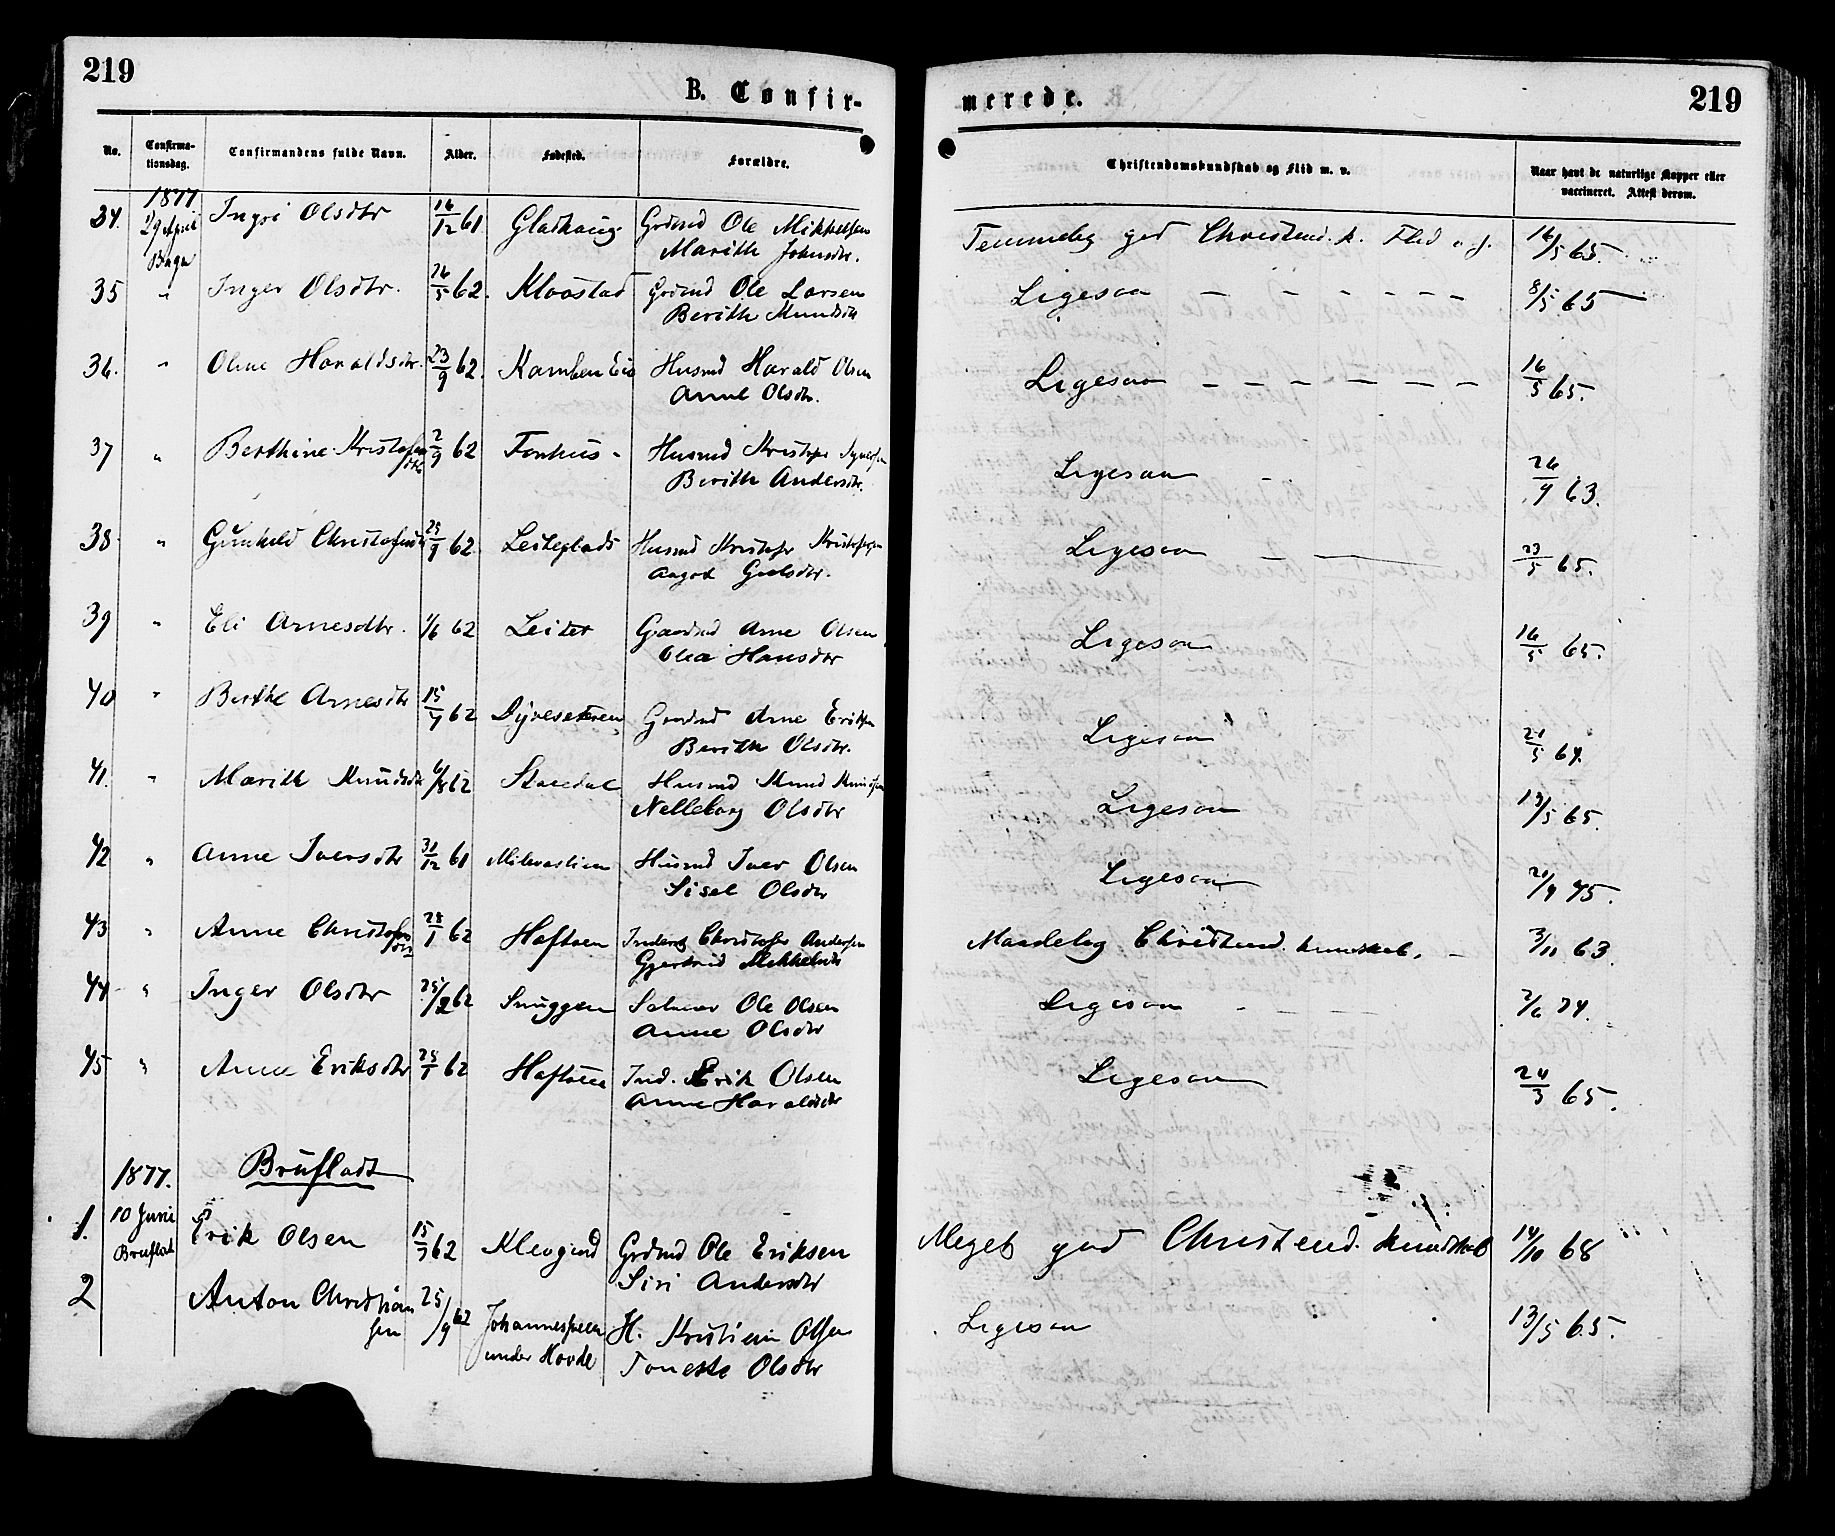 219
B. Confir-
No. Confirma-tionsdag. Confirmandens fulde Navn. Alder. Fødested. Forældre.
1877
34. 29 April Bagn Ingri Olsdtr 16/12 61 Gladhaug Grdmd Ole Mikkelsen
Marith Johnsdtr.
35 " Inger Olsdtr. 26/5 62. Klosstad Grdmd Ole Larsen
Berith Knudsdtr
36. " Oline Haraldsdtr. 23/9 62. Husmd Harald Olsen
Anne Olsdtr.
37 " Berthine Kristofersdtr 2/9 62 Fonhus Husmd Kristofer
Berith Andersdtr.
38 " Gunhild Christofersdtr 62. Husmd Kristofer Kristofersen
Aagot
39 " Eli Arnesdtr. 1/6 62 Leiter Grdmd Arne Olsen
Olea Hansdtr
40 " Berthe Arnesdtr 15/7 62 Dyveseteren Grdmd Arne Eriksen
Berith Olsdtr.
41. " Marith Knudsdtr 6/8 62 Husmd Knud Knudsen
Nelleborg Olsdtr
42 " Anne Iversdtr 31/12 61 Husmd Iver Olsen
Sisel Olsdtr
43 " Anne Christofersdtr 28/1 62 Haftoen Inderst Christofer Andersen
Gjertrud Mikkelsdtr
44 " Inger Olsdtr 25/2 62 Snuggen Selveier Ole Olsen
Anne Olsdtr
45 " Anne Eriksdtr 62 Haftoen Ind. Erik Olsen
Anne Haraldsdtr
1877. Brufladt
1. 10 Juni Bruflat Erik Olsen 15/3 62 Klevgard Grdmd Ole Eriksen
Siri Andersdtr
2 Anton Christiansen 25/9 62 H. Kristian Olsen
under Hovde Toneste Olsdtr
merede.
219
Christendomskundskab og Flid m. v. Naar havt de naturlige Kopper eller vaccineret. Attest derom.
Temmelig god Christend. k. Flid o. s. 16/5 65.
Ligesaa 8/5 65
Ligesaa 16/5 65.
Ligesaa 26/9 63.
Ligesaa 23/5 65.
Ligesaa 16/5 65.
Ligesaa 21/5 67.
Ligesaa 13/5 65.
Ligesaa 75.
Maadelig Christend. kundskab. 3/11 63.
Ligesaa 2/6 74.
Ligesaa 24/3 65.
Meget god Christend. kundskab 14/10 68
Ligesaa 13/5 65.